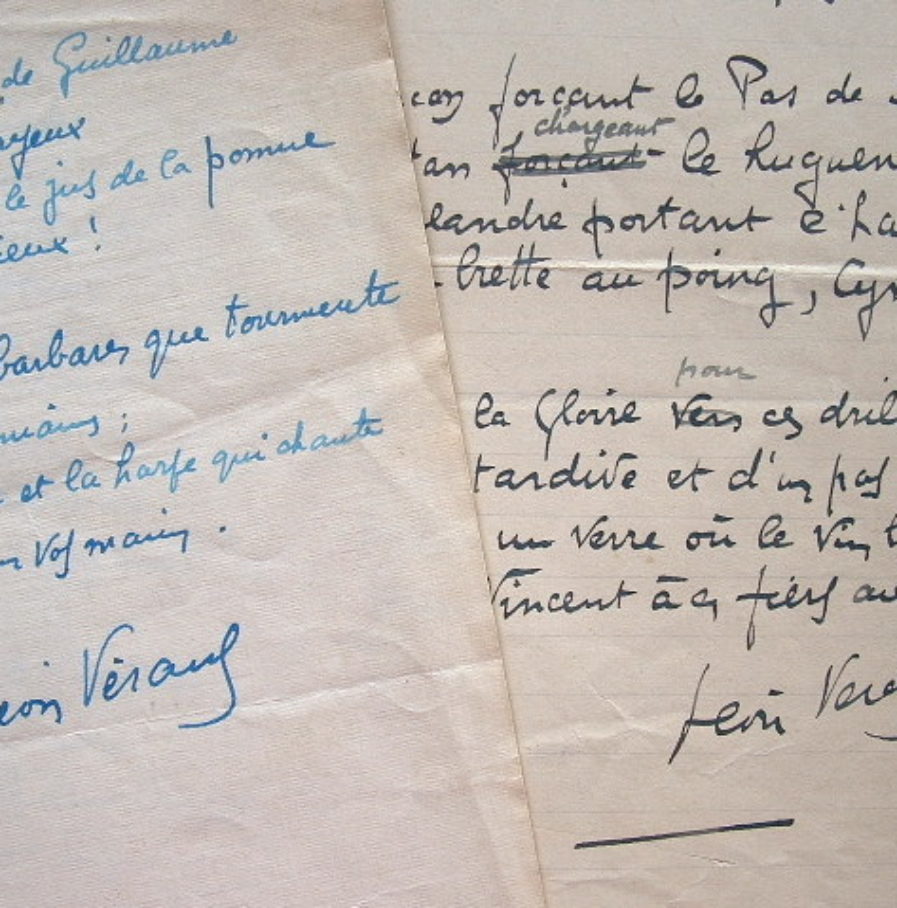 de Guillaume
le jus de la pomme
barbares que tourmente
mains ;
et la harpe qui chante
vos mains .
Léon Vérane
forçant le Pas de
chargeant
forçant le huguen
landre portant
brette au poing, Cyr
pour
la Gloire vers ces dril
tardive et d'un pas
un verre où le vin
Vincent à ces fiers
Léon Vera